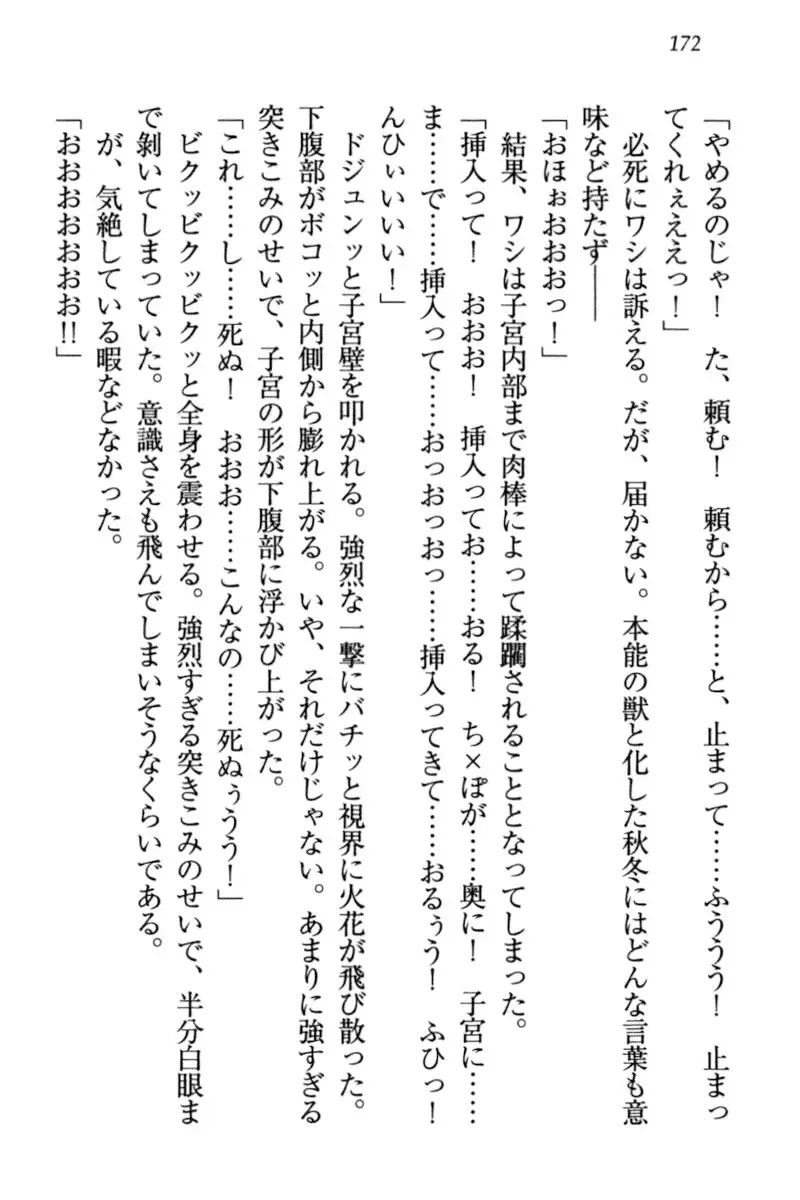 172
「やめるのじゃ！　た、頼む！　頼むから……と、止まって……ふううう！　止まっ
てくれぇええっ！」
　必死にワシは訴える。だが、届かない。本能の獣と化した秋冬にはどんな言葉も意
味など持たず――
「おほぉおおおっ！」
　結果、ワシは子宮内部まで肉棒によって蹂躙されることとなってしまった。
「挿入って！　おおお！　挿入ってお……おる！　ち×ぽが……奥に！　子宮に……
ま……で……挿入って……おっおっおっ……挿入ってきて……おるぅう！　ふひっ！
んひぃいいい！」
　ドジュンッと子宮壁を叩かれる。強烈な一撃にバチッと視界に火花が飛び散った。
下腹部がボコッと内側から膨れ上がる。いや、それだけじゃない。あまりに強すぎる
突きこみのせいで、子宮の形が下腹部に浮かび上がった。
「これ……し……死ぬ！　おおお……こんなの……死ぬぅうう！」
　ビクッビクッビクッと全身を震わせる。強烈すぎる突きこみのせいで、半分白眼ま
で剝いてしまっていた。意識さえも飛んでしまいそうなくらいである。
　が、気絶している暇などなかった。
「おおおおおおお‼」